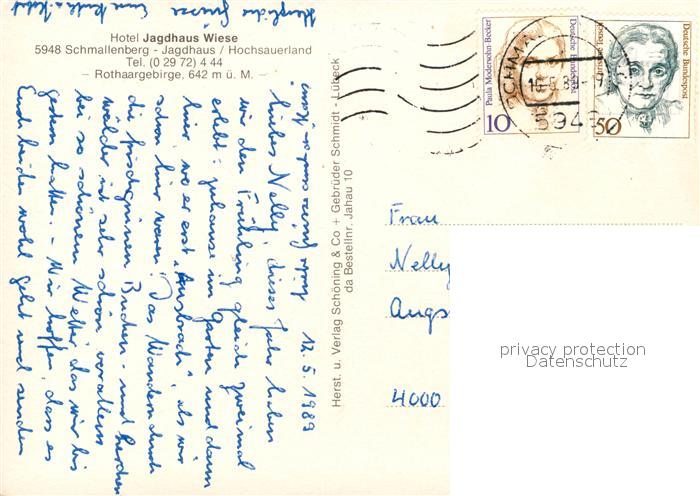 Hotel Jagdhaus Wiese
5948 Schmallenberg - Jagdhaus / Hochsauerland
Tel. (0 29 72) 4 44
– Rothaargebirge, 642 m ü. M. –
12. 5. 1989
Liebes Nelly, dieses Jahr haben
wir den Frühling gleich zweimal
erlebt: zuhause im Garten und dann
hier, wo er erst "Ausbrach", als wir
schon hier waren. Das Wandern durch
die frischgrünen Buchen- und Lerchen
wälder ist sehr schön, vor allem
bei so schönem Wetter, das wir bis
gestern hatten. - Wir hoffen, dass es
Euch beiden wohl geht und senden
Herzliche Grüsse
Herst. u. Verlag Schöning & Co + Gebrüder Schmidt - Lübeck
da Bestellnr. Jahau 10
Paula Modersohn-Becker
Deutsche Bundespost
10
Deutsche Bundespost
50
Frau
Nelly
Augs
4000
privacy protection
Datenschutz